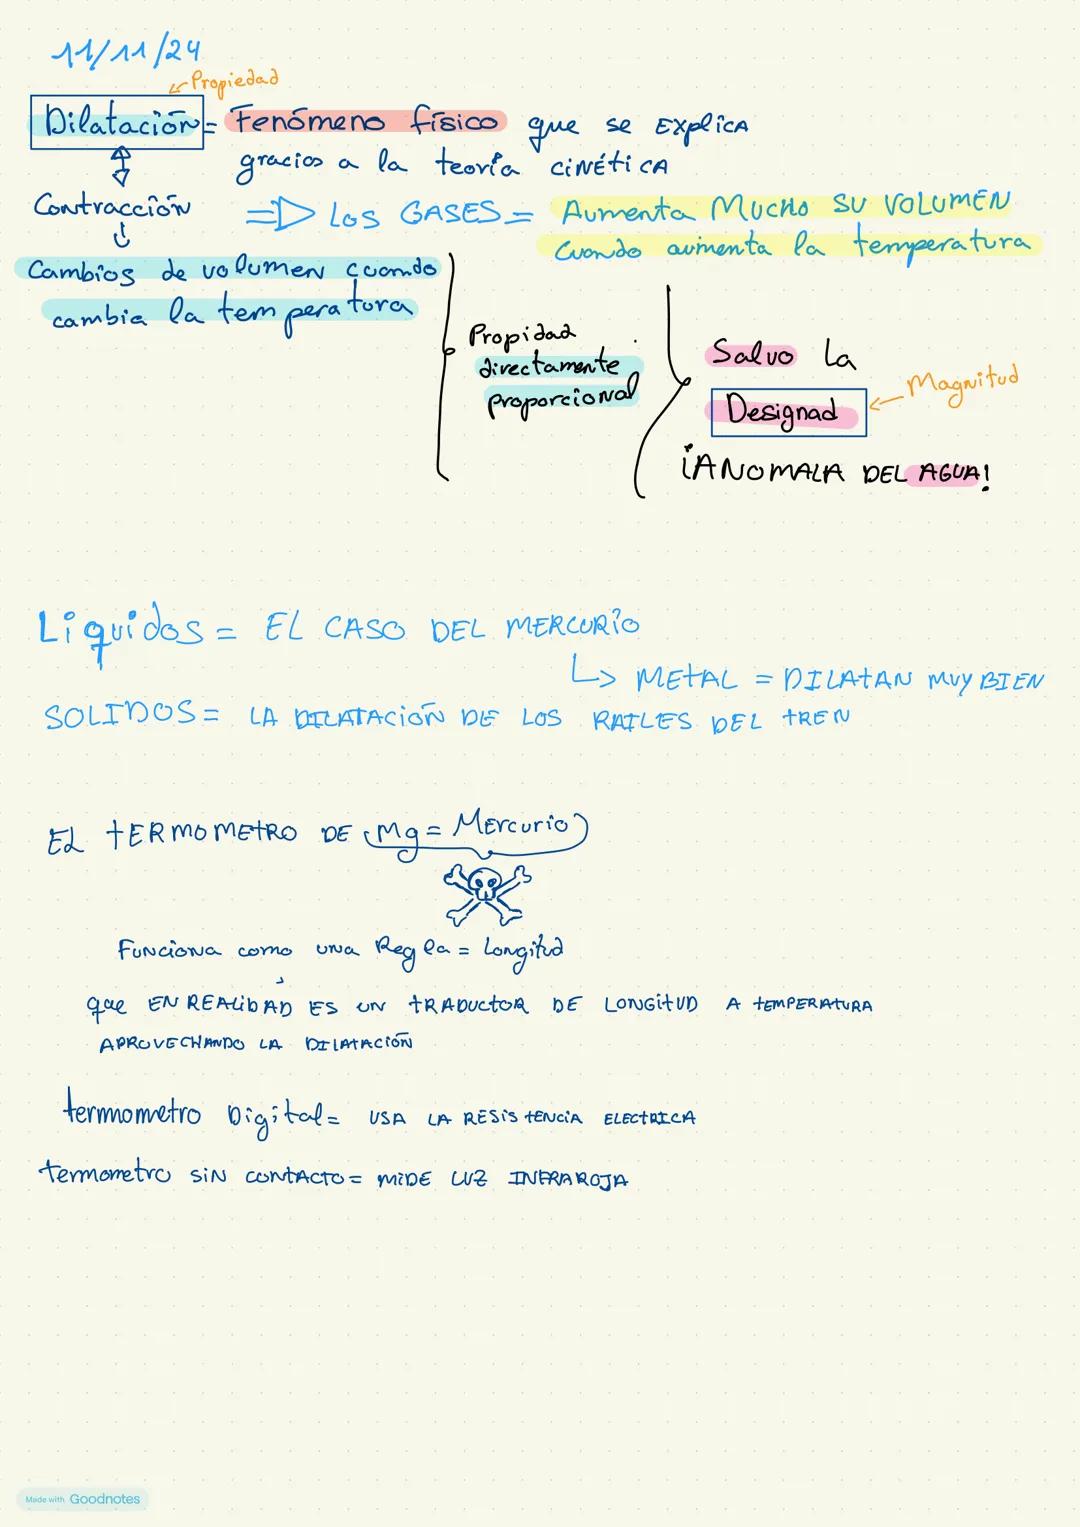 11/11/24
Propiedad
Dilatación = Fenómeno físico que se explica
gracias a la teoría cinética
Contracción
=> Los GASES = Aumenta MUCHO SU VOLUMEN
Cuando aumenta la temperatura
Cambios de volumen cuando
cambia la temperatura
Propidad
directamente
proporcional
Salvo la
Designad
Magnitud
¡ANOMALA DEL AGUA!
Liquidos = EL CASO DEL MERCURIO
↳ METAL = DILATAN MUY BIEN
SOLIDOS = LA DILATACIÓN DE LOS RAILES DEL TREN
EL TERMOMETRO DE Mg = Mercurio
Funciona como una Regla = Longitud
que EN REALIDAD ES UN TRADUCTOR DE LONGITUD A TEMPERATURA
APROVECHANDO LA DILATACIÓN
termometro Digital = USA LA RESISTENCIA ELECTRICA
termometro SIN CONTACTO = MIDE LUZ INFRAROJA
Made with Goodnotes